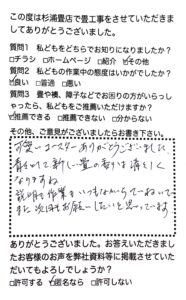 この度は杉浦畳店で畳工事をさせていただきま
してありがとうございました。
質問1　私どもをどちらでお知りになりましたか？
□チラシ　□ホームページ　□紹介　☑その他
質問2　私どもの作業中の態度はいかがでしたか？
☑良い　□普通　□悪い
質問3　畳や襖、障子などでお困りの方がいらっし
ゃったら、私どもをご推薦いただけますか？
☑推薦できる　□推薦できない　□分からない
その他、ご意見がございましたらお書き下さい。
可愛いコースターありがとうございました
新しい畳の香りは清々しく
なりますね
説明も作業も
また次回もお願いしたいと思っています
ありがとうございました。お答えいただきまし
たお客様のお声を弊社資料等に掲載させていた
だいてもよろしでしょうか？
□許可する　☑匿名なら　□許可しない